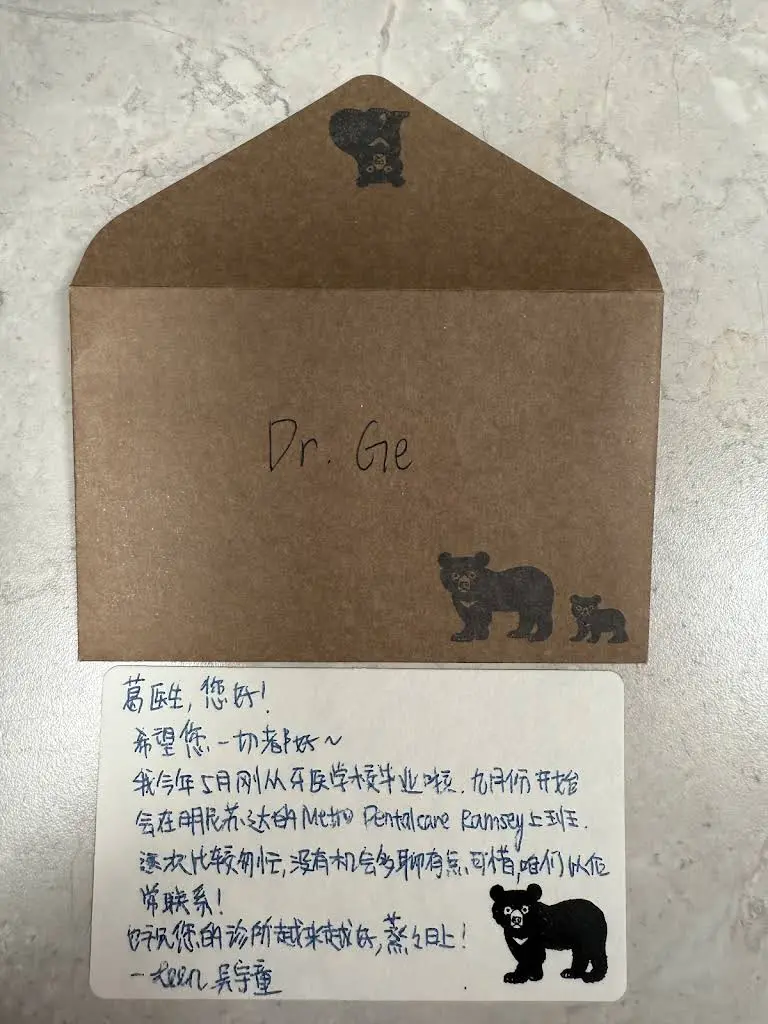 Dr. Ge
葛医生,您好!
希望您一切都好~
我今年5月刚从牙医学校毕业啦,九月份开始
会在明尼苏达的Metro Dentalcare Ramsey上班.
这次比较匆忙,没有机会多聊有点可惜,咱们以后
常联系!
好汉您的诊所越来越好,蒸々日上!
吴宇童